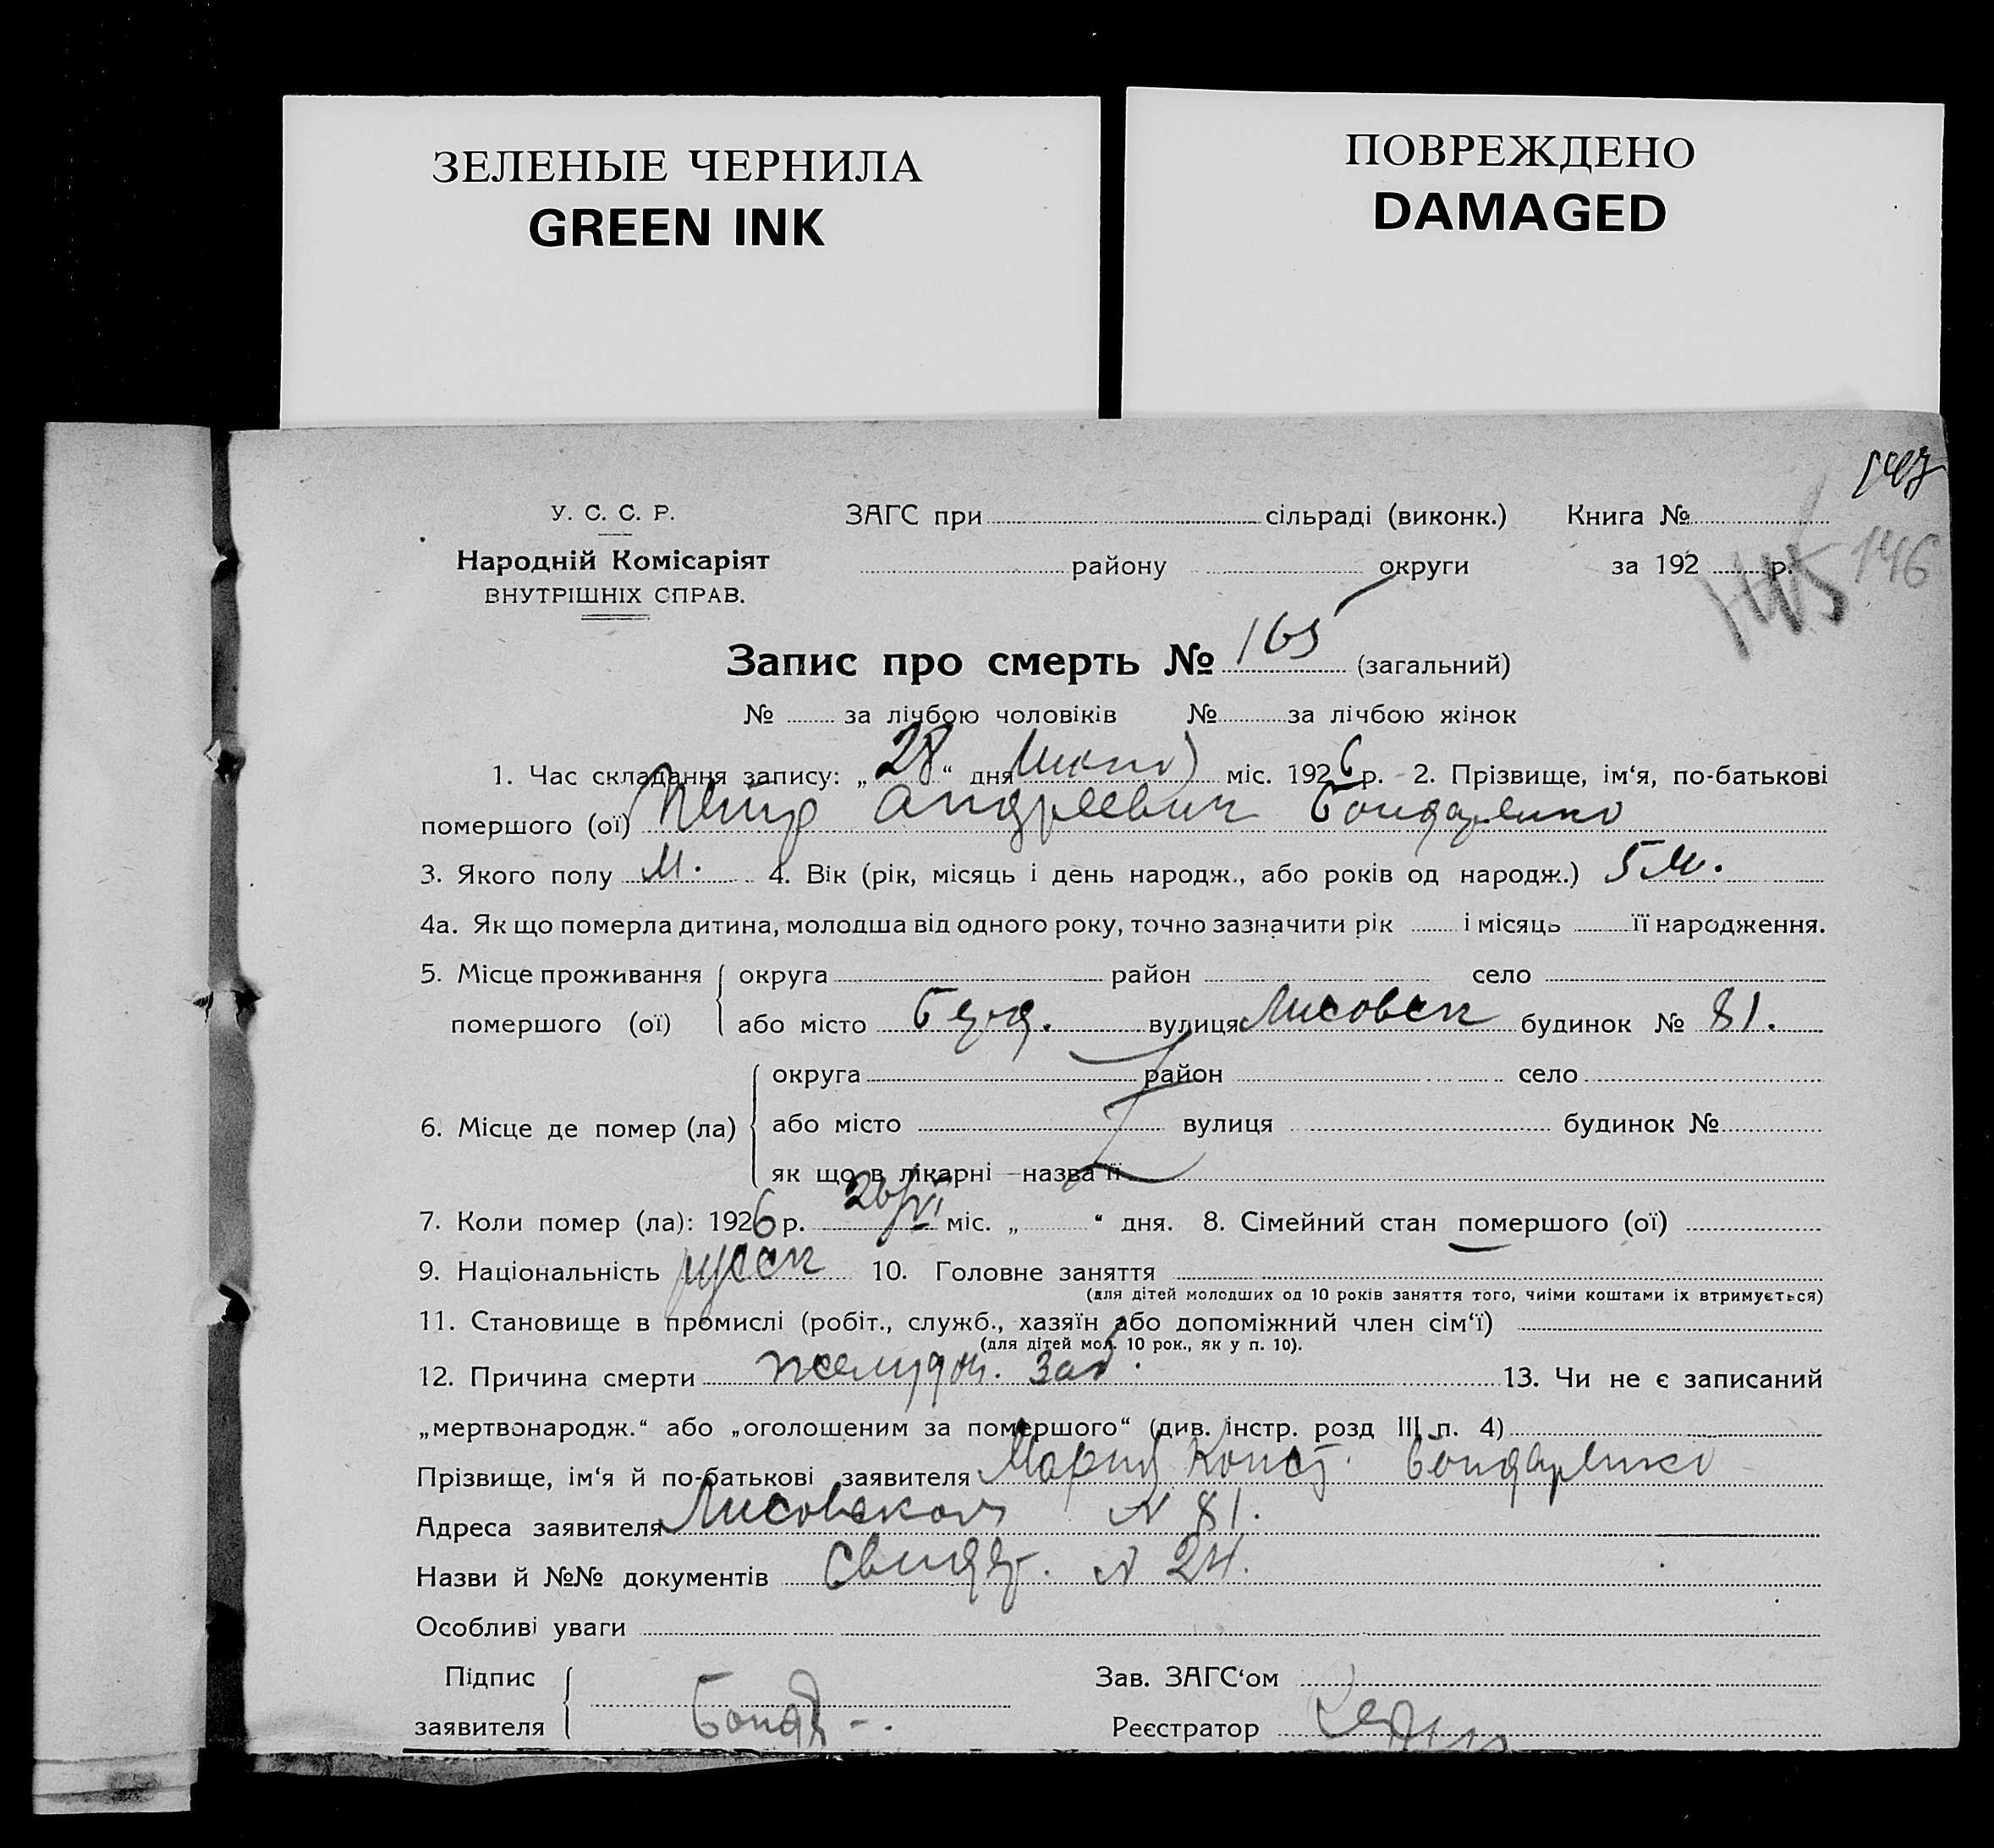 ЗЕЛЕНЫЕ ЧЕРНИЛА
GREEN INK
ПОВРЕЖДЕНО
DAMAGED
147
У. С. С. Р. ЗАГС при сільраді (виконк.) Книга №
Народній Комісаріят району округи за 192 р. 146
ВНУТРІШНІХ СПРАВ.
Запис про смерть № 165 (загальний)
№ за лічбою чоловіків № за лічбою жінок
1. Час складання запису: „28“ дня міс. 1926 р. 2. Прізвище, ім‘я, по-батькові
помершого (ої) Петр Андреевич Бондаренко
3. Якого полу М. 4. Вік (рік, місяць і день народж., або років од народж.) 5 м.
4а. Як що померла дитина, молодша від одного року, точно зазначити рік і місяць її народження.
5. Місце проживання округа район село
помершого (ої) або місто вулиця Лисовск будинок № 81.
округа район село
6. Місце де помер (ла) або місто вулиця будинок №
як що в лікарні — назва її
7. Коли помер (ла): 1926 р. 26/VI міс. „ “ дня. 8. Сімейний стан помершого (ої)
9. Національність русск 10. Головне заняття
(для дітей молодших од 10 років заняття того, чиїми коштами їх втримується)
11. Становище в промислі (робіт., служб., хазяїн або допоміжний член сім‘ї)
(для дітей мол. 10 рок., як у п. 10).
12. Причина смерти желудоч. заб. 13. Чи не є записаний
„мертвонародж.“ або „оголошеним за помершого“ (див. інстр. розд III п. 4)
Прізвище, ім‘я й по-батькові заявителя Мария Конст. Бондаренко
Адреса заявителя Лисовская N 81.
Назви й №№ документів Свидет. N 24.
Особливі уваги
Підпис Зав. ЗАГС‘ом
заявителя Бонд Реєстратор